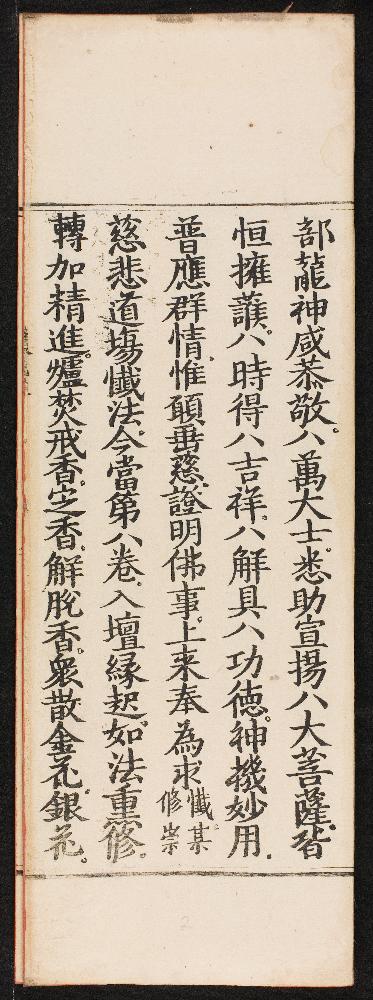 部龍神咸恭敬。八萬大士。悉助宣揚八大菩薩。皆
恒擁護。八時得八吉祥。八解具八功德。神機妙用。
普應群情。惟願垂慈。證明佛事。上來奉為求懺某修崇
慈悲道塲懺法。今當第八卷。入壇緣起。如法熏修。
轉加精進。爐焚戒香。定香。解脫香。衆散金花。銀花。